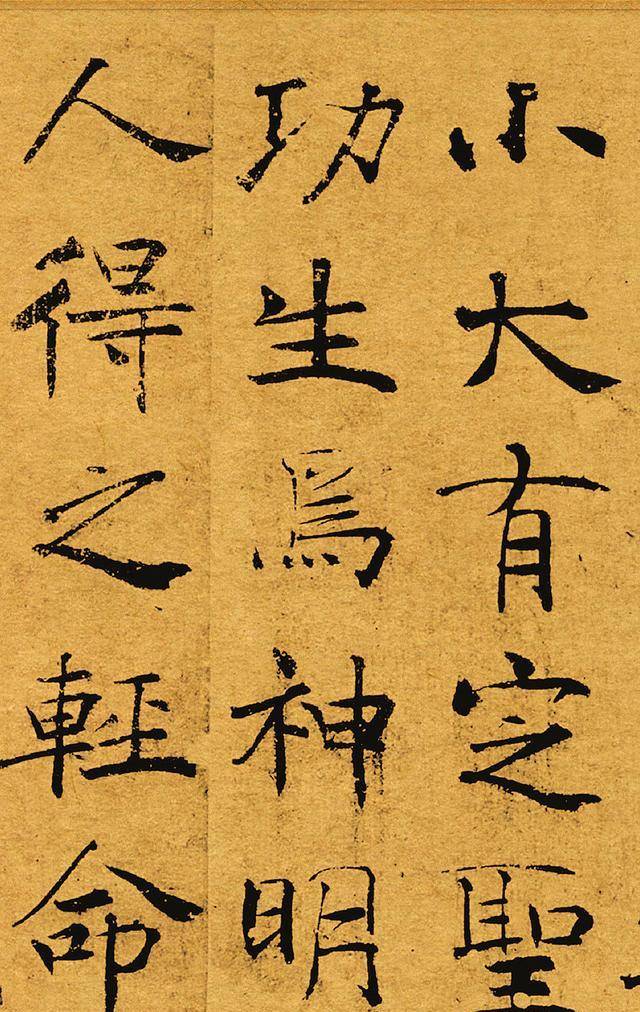 小大有定聖
功生焉神明
人得之輕命